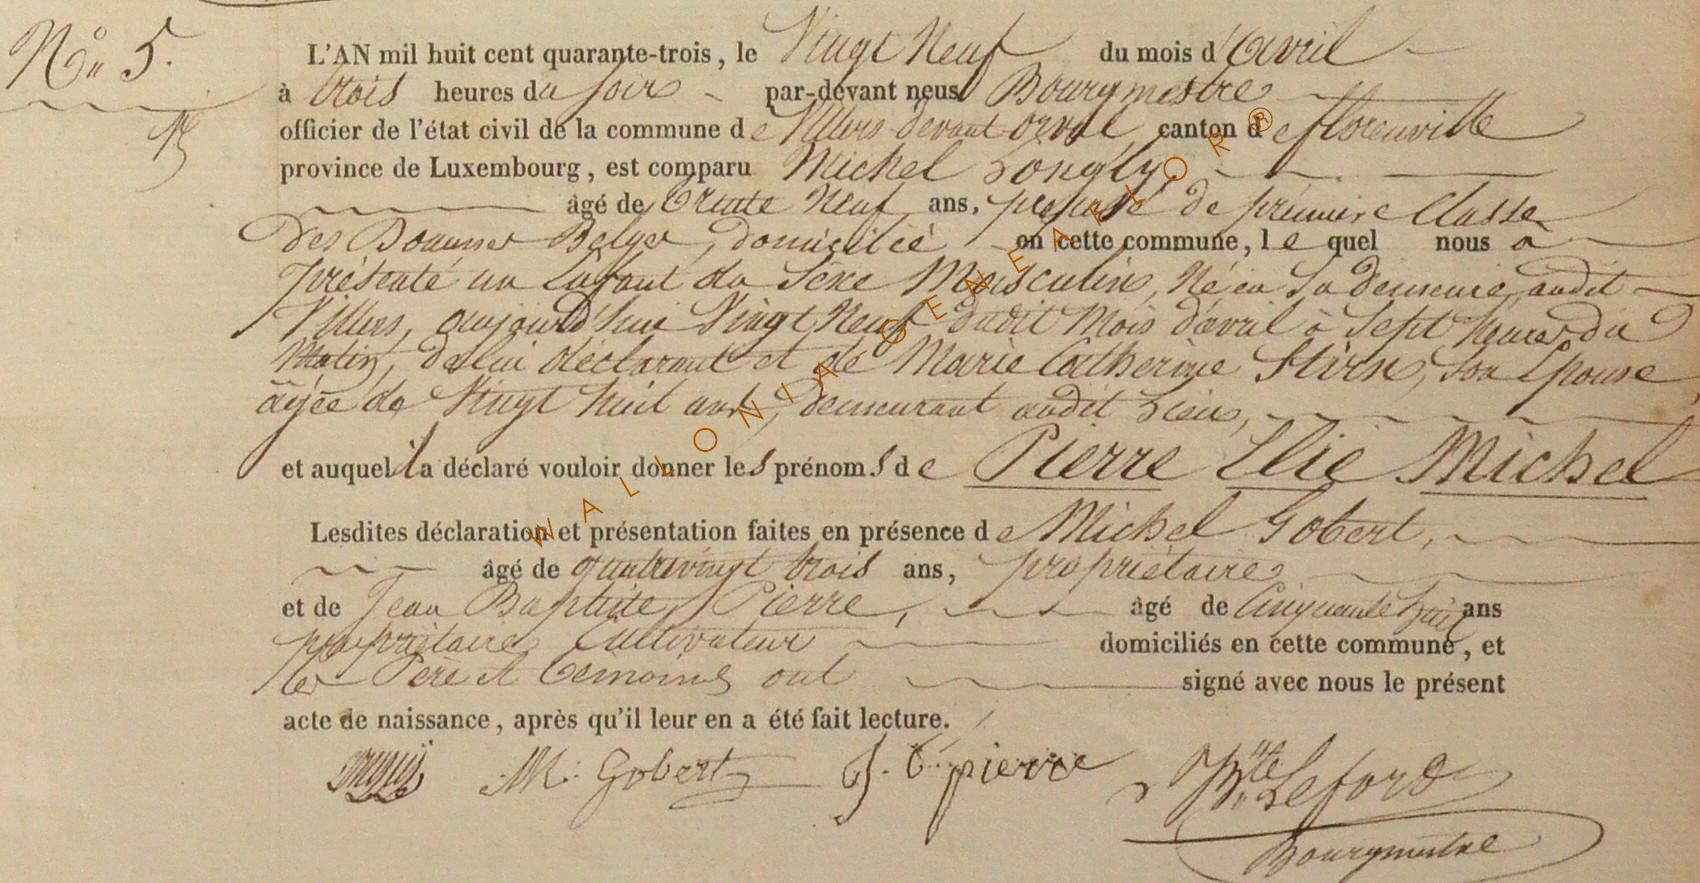 No 5.
L'AN mil huit cent quarante-trois, le Vingt Neuf du mois d'avril
à trois heures du soir par-devant nous Bourgmestre
officier de l'état civil de la commune de Villers devant orval, canton de florenville
province de Luxembourg, est comparu Michel Longly,
âgé de trente Neuf ans, préposé de première Classe
des Douanes Belges, domicilié en cette commune, lequel nous a
présenté un Enfant du Sexe Masculin, Né en Sa demeure, audit
Villers, aujourd'hui Vingt Neuf dudit Mois d'avril à Sept heures du
Matin, de lui déclarant et de Marie Catherine Stirn, son Epouse,
agée de Vingt huit ans, demeurant audit Lieu,
et auquel il a déclaré vouloir donner les prénoms de Pierre Elie Michel
Lesdites déclaration et présentation faites en présence de Michel Gobert,
âgé de quatrevingt trois ans, propriétaire
et de Jean Baptiste Pierre, âgé de Cinquante huit ans
propriétaire Cultivateur domiciliés en cette commune, et
les Père et temoins ont signé avec nous le présent
acte de naissance, après qu'il leur en a été fait lecture.
M: Gobert J. B. pierre Lefort
Bourgmestre
WALLONIA GENEALOR®